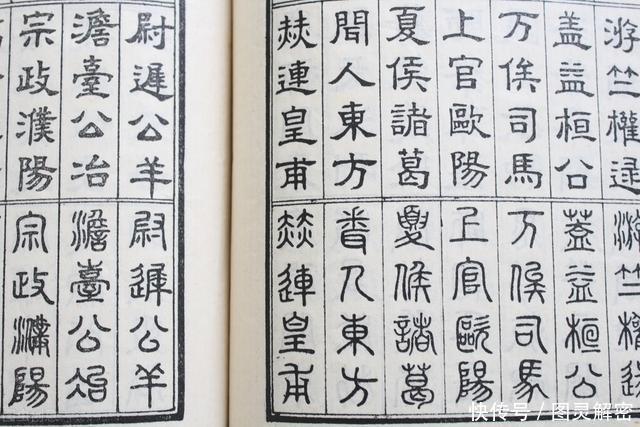 游竺權逯
盖益桓公
万俟司馬
上官歐陽
夏侯諸葛
聞人東方
赫連皇甫
游竺權逯
蓋益桓公
万俟司馬
上官歐陽
夏侯諸葛
聞人東方
赫連皇甫
尉遲公羊
澹臺公冶
宗政濮陽
尉遲公羊
澹臺公冶
宗政濮陽
快传号 / 图灵解密